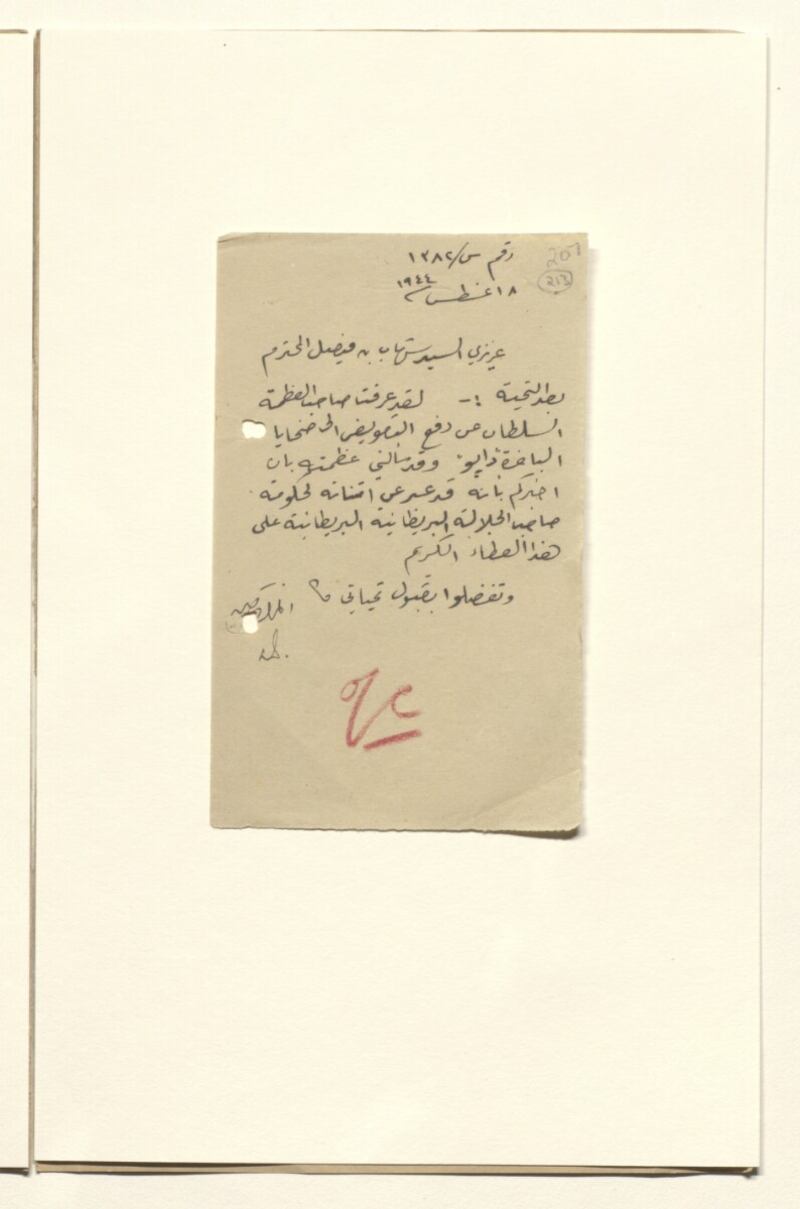 205
213
رقم س/١٣٨٢
١٨ اغسطس ١٩٤٤
عزيزي السيد شهاب بن فيصل المحترم
بعد التحية :- لقد عرفنا صاحب العظمة
السلطان عن دفع التعويض الى ضحايا
الباخرة "دايو" وقد سألني عظمته بان
اخبركم بانه قد عبر عن امتنانه لحكومة
صاحب الجلالة البريطانية البريطانية على
هذا العطاء الكريم
وتفضلوا بقبول تحياتي